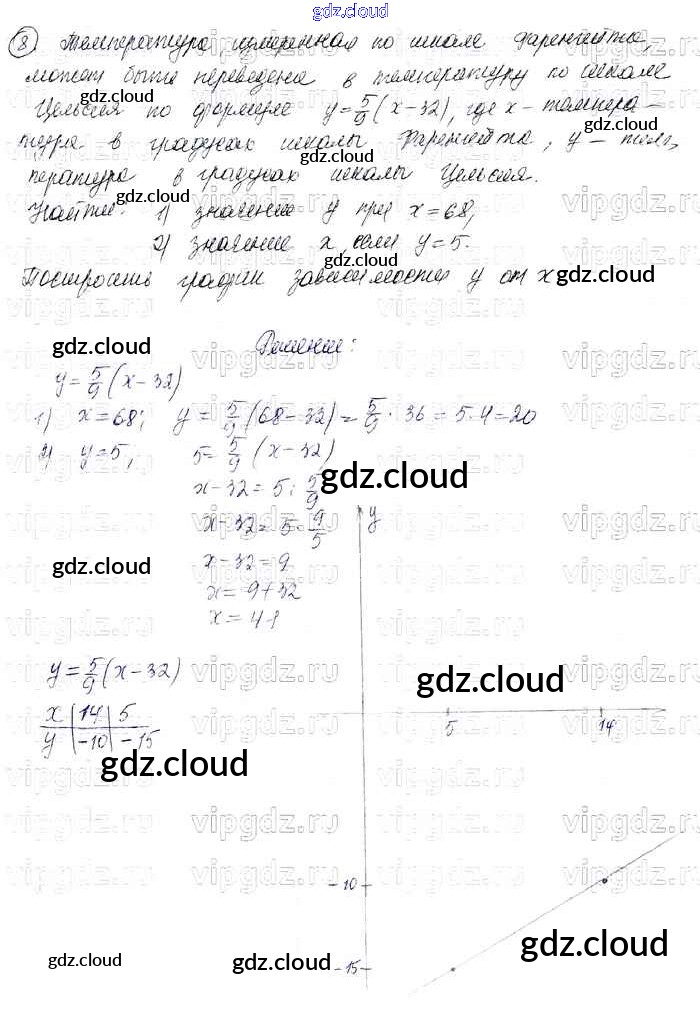 gdz.cloud
8) Температура измеренная по шкале Фаренгейта,
может быть переведена в температуру по шкале
Цельсия по формуле y=5/9(x-32), где x - темпера-
тура в градусах шкалы Фаренгейта, y - тем,
gdz.cloud
gdz.cloud
пература в градусах шкалы Цельсия.
gdz.cloud
Найти: 1) значение y при x=68,
2) значение x, если y=5.
gdz.cloud
Построить график зависимости y от x
gdz.cloud
gdz.cloud
Решение:
y=5/9(x-32)
1) x=68; y=5/9(68-32)=5/9·36=5·4=20
2) y=5, 5=5/9(x-32)
x-32=5:5/9
gdz.cloud
x-32=5·9/5
y
x-32=9
gdz.cloud
x=9+32
x=41
y=5/9(x-32)
gdz.cloud
x 14 5
y -10 -15
5 14
gdz.cloud
-10
gdz.cloud
-15
gdz.cloud
gdz.cloud
vipgdz.ru